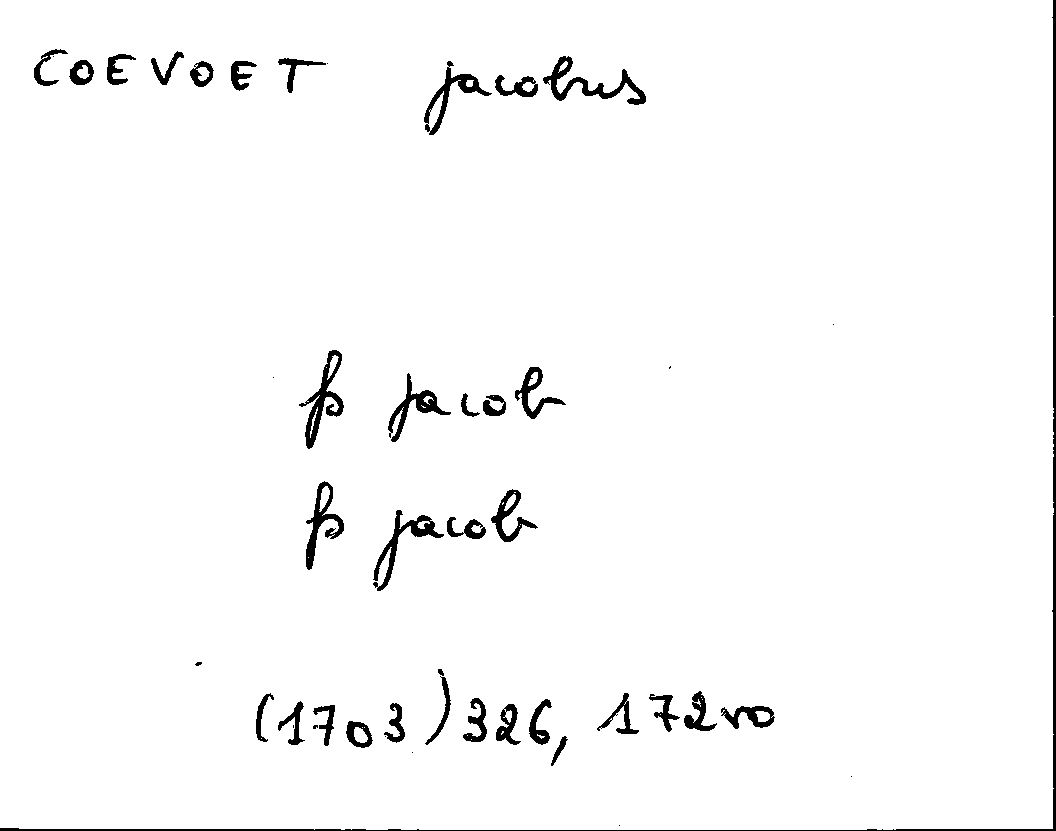 COEVOET jacobus
fs jacob
fs jacob
(1703) 326, 172vo